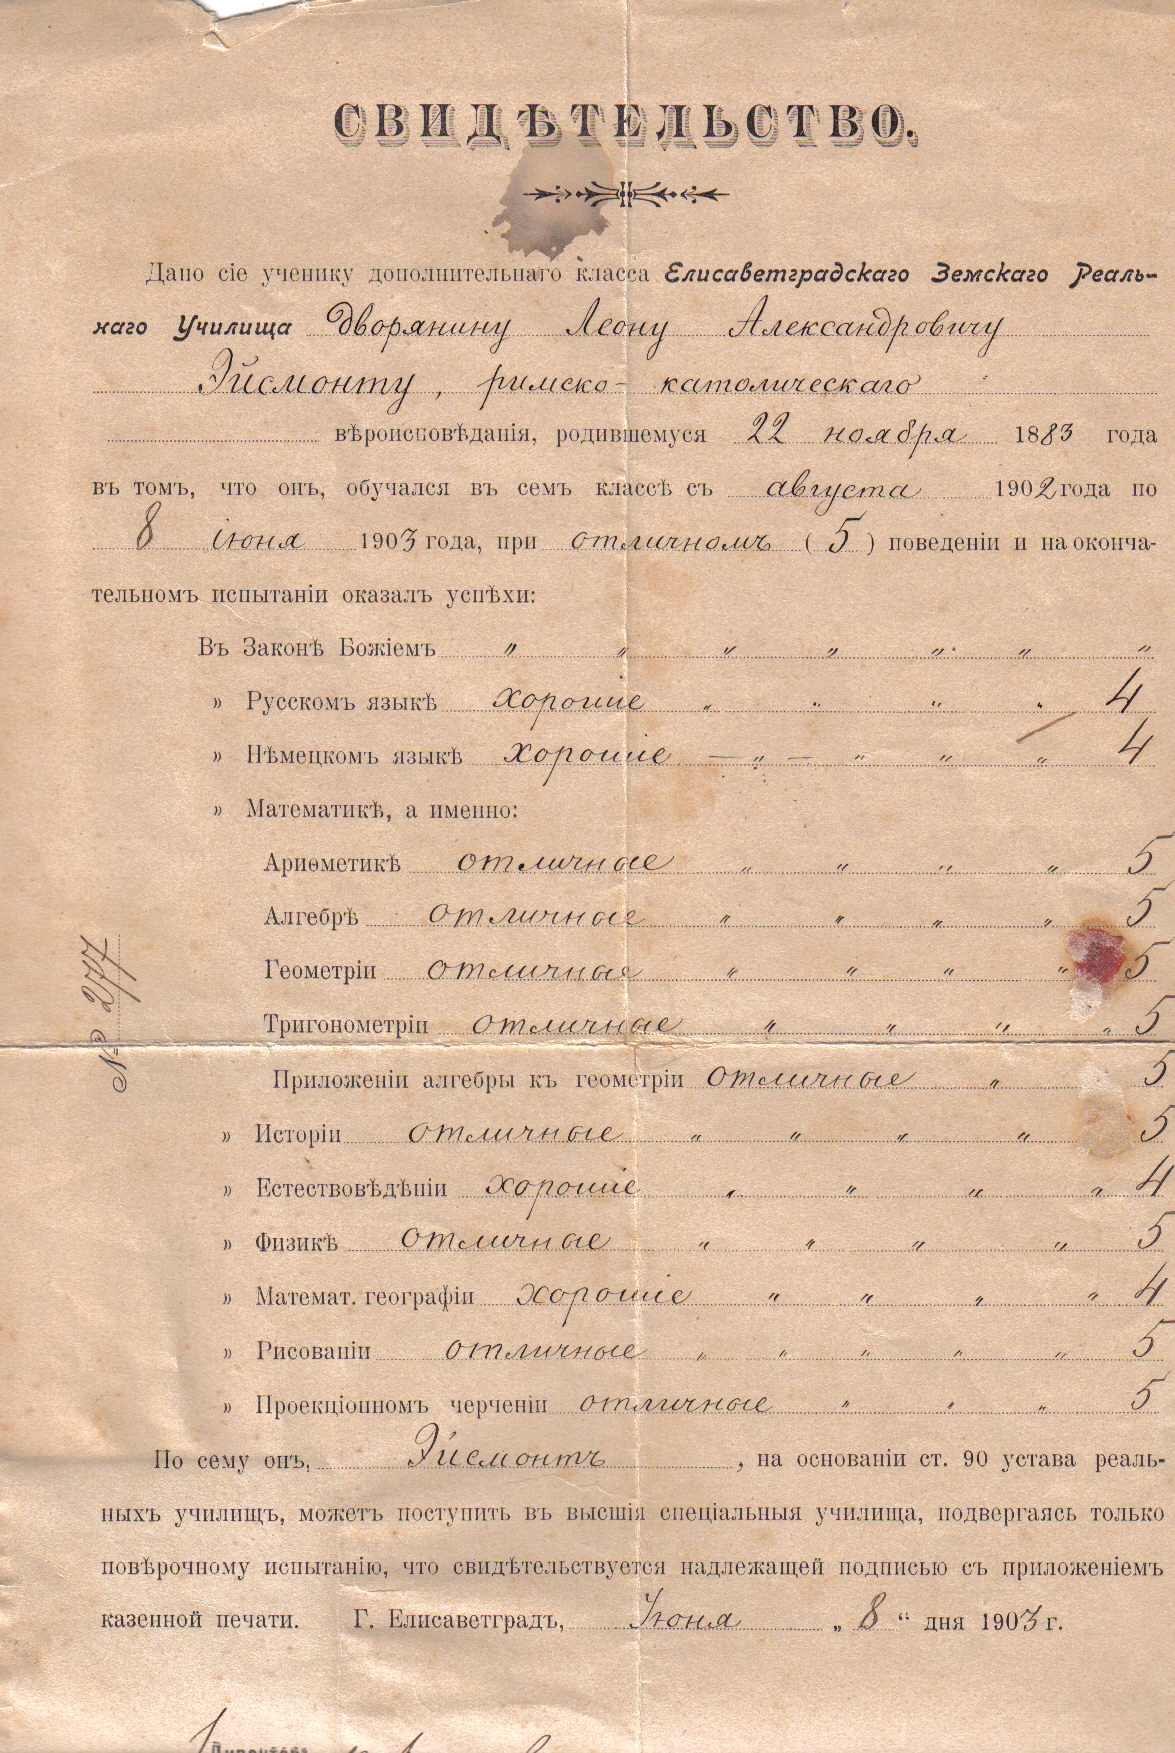 СВИДѢТЕЛЬСТВО.
Дано сіе ученику дополнительнаго класса Елисаветградскаго Земскаго Реаль-
наго Училища Дворянину Леону Александровичу
Эйсмонту, римско-католическаго
вѣроисповѣданія, родившемуся 22 ноября 1883 года
въ томъ, что онъ, обучался въ семъ классѣ съ августа 1902 года по
8 іюня 1903 года, при отличномъ (5) поведеніи и на оконча-
тельномъ испытаніи оказалъ успѣхи:
Въ Законѣ Божіемъ " " " " " " "
» Русскомъ языкѣ хорошіе " " " " 4
» Нѣмецкомъ языкѣ хорошіе — " — " " " 4
» Математикѣ, а именно:
Ариѳметикѣ отличные " " " " 5
Алгебрѣ отличные " " " " 5
Геометріи отличные " " " " 5
Тригонометріи отличные " " " " 5
Приложеніи алгебры къ геометріи отличные " 5
» Исторіи отличные " " " " 5
» Естествовѣдѣніи хорошіе " " " " 4
» Физикѣ отличные " " " " 5
» Математ. географіи хорошіе " " " " 4
» Рисованіи отличные " " " " " 5
» Проекціонномъ черченіи отличные " " " 5
По сему онъ, Эйсмонтъ, на основаніи ст. 90 устава реаль-
ныхъ училищъ, можетъ поступить въ высшія спеціальныя училища, подвергаясь только
повѣрочному испытанію, что свидѣтельствуется надлежащей подписью съ приложеніемъ
казенной печати. Г. Елисаветградъ, Іюня „ 8 “ дня 1903 г.
№ 277
Директоръ